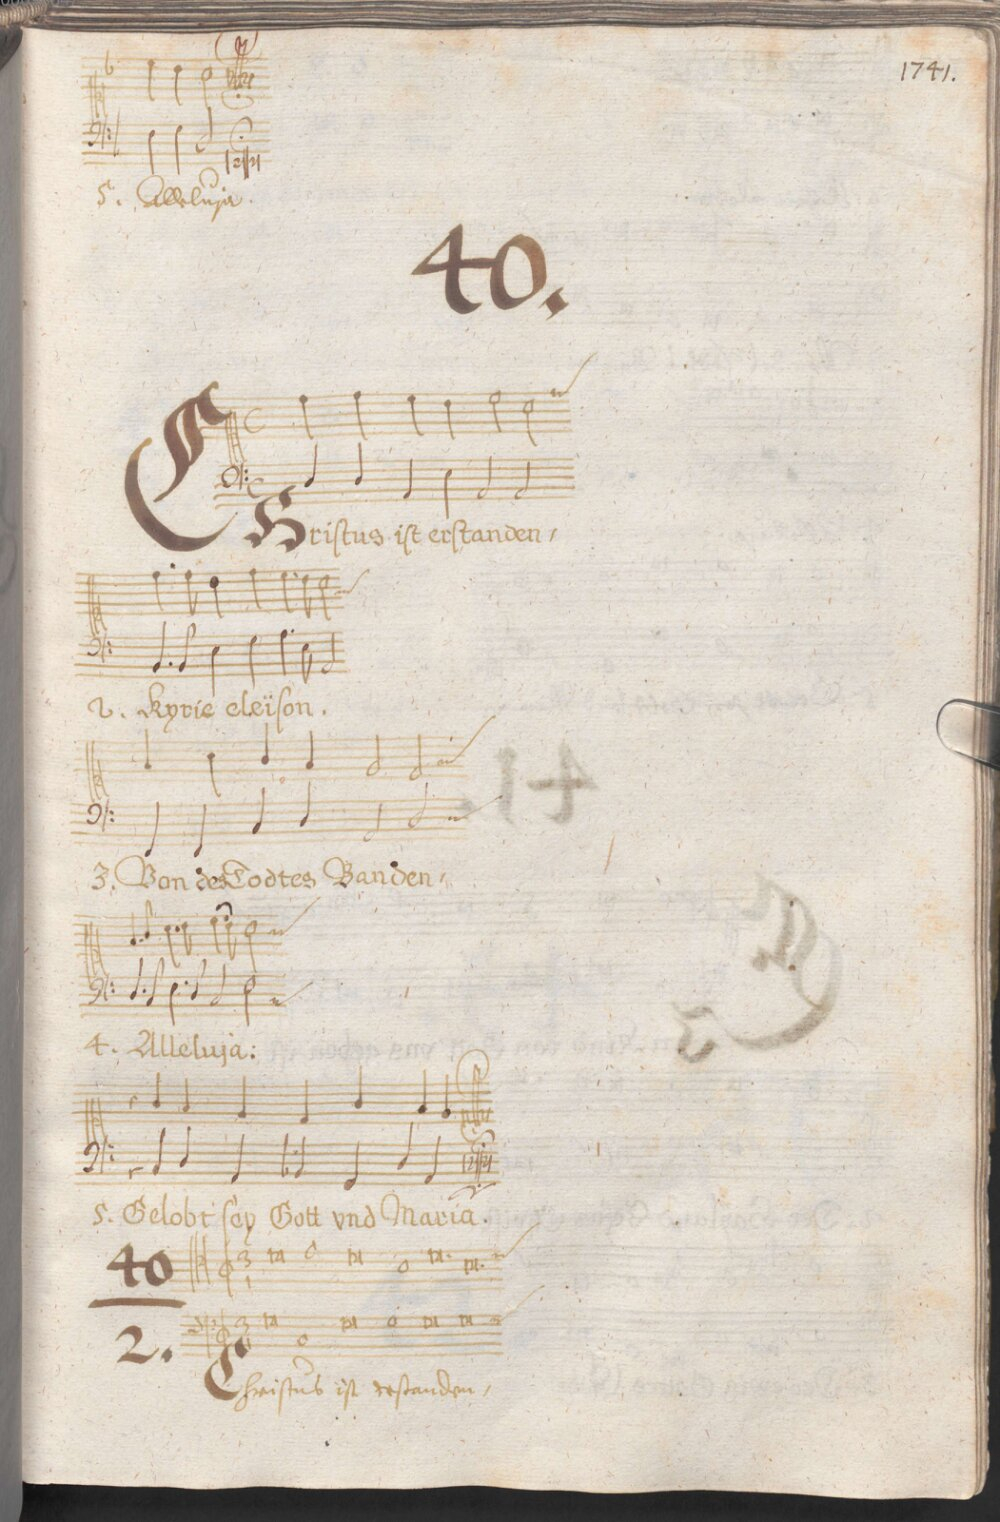 1741.
5. Alleluja.
40.
CHristus ist erstanden,
2. Kyrie eleïson.
3. Von des Todtes Banden,
4. Alleluja:
5. Gelobt sey Gott vnd Maria.
40
2.
Christus ist erstanden,